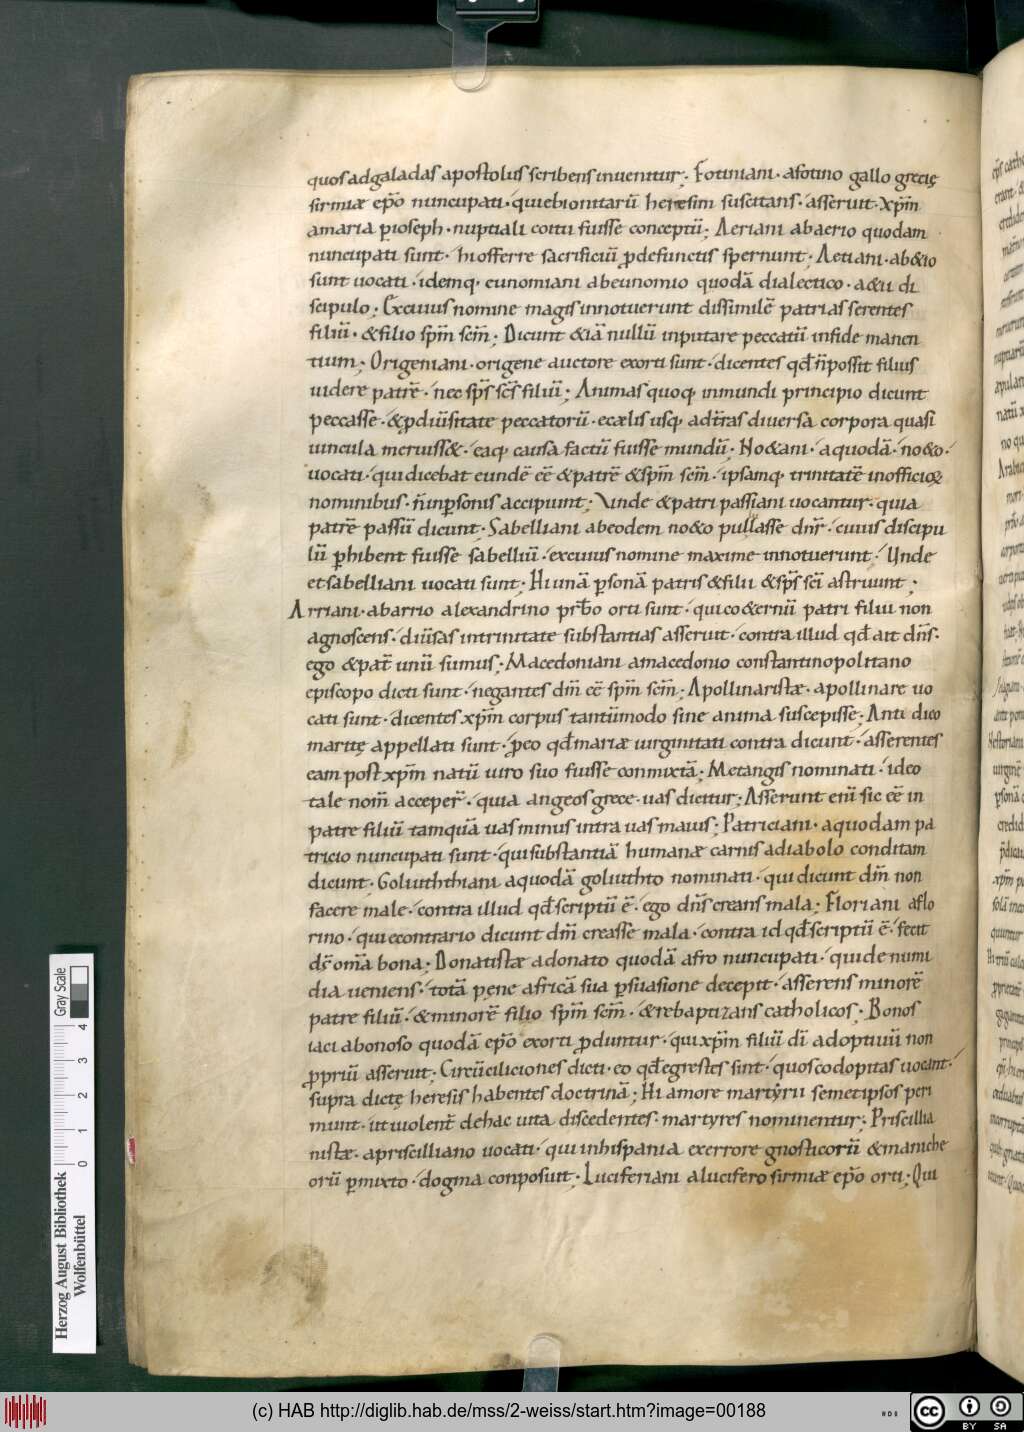 quos adgaladas apostolus scribens inuenitur; Fotiniani · afotino gallo grecię
sirmiæ ep̄o nuncupati · qui ebionitarū heresim suscitans · asseruit · xp̄m
amaria p̱ ioseph · nuptiali coitu fuisse conceptū; Aeriani abaerio quodam
nuncupati sunt · hi offerre sacrificiū p̱defunctis spernunt; Aetiani · ab&io
sunt uocati · idemq; eunomiani abeunomio quodā dialectico · a&ii di
scipulo; Ex cuius nomine magis innotuerunt dissimilē patri asserentes
filiū · & filio sp̄m sc̄m; Dicunt &iā nullū inputare peccatū infide manen
tium; Origeniani · origene auctore exorti sunt · dicentes qđ n̄ possit filius
uidere patrē · nec sp̄s sc̄s filiū; Animas quoq; inmundi principio dicunt
peccasse · & p̱ diūsitate peccatorū · ecælis usq; ad tr̄as diuersa corpora quasi
uincula meruiss& · eaq; causa factū fuisse mundū; No&ani · aquodā · no&o ·
uocati · qui dicebat eundē eē & patrē & sp̄m sc̄m · ipsamq; trinitatē inofficioꝝ
nominibus · n̄ inp̱sonis accipiunt; Unde & patripassiani uocantur · quia
patrē passū dicunt; Sabelliani abeodem no&o pullasse dn̄r · cuius discipu
lū p̱hibent fuisse sabelliū · excuius nomine maxime innotuerunt · Unde
et sabelliani uocati sunt; Hi unā p̱sonā patris & filii & sp̄s sc̄i astruunt;
Arriani · abarrio alexandrino prb̄o orti sunt · qui co&ernū patri filiū non
agnoscens · diūsas intrinitate substantias asseruit · contra illud qđ ait dn̄s ·
ego & pat̄ unū sumus; Macedoniani amacedonio constantinopolitano
episcopo dicti sunt · negantes dm̄ eē sp̄m sc̄m; Apollinaristæ · apollinare uo
cati sunt · dicentes xp̄m corpus tantūmodo sine anima suscepisse; Anti dico
maritę appellati sunt · p̱eo qđ mariæ uirginitati contra dicunt · asserentes
eam post xp̄m natū uiro suo fuisse conmixtā; Metangis nominati · ideo
tale nom̄ acceper̄ · quia angeos grece · uas dicitur; Asserunt enī sic eē in
patre filiū tamquā uas minus intra uas maius; Patriciani · aquodam pa
tricio nuncupati sunt · qui substantiā humanæ carnis adiabolo conditam
dicunt · Goliuththiani aquodā goliuthto nominati · qui dicunt dm̄ non
facere male · contra illud qđ scriptū ē · ego dn̄s creans mala; Floriani aflo
rino · qui econtrario dicunt dm̄ creasse mala · contra id qđ scriptū ē · fecit
ds̄ om̄a bona; Donatistæ adonato quodā afro nuncupati · qui de numi
dia ueniens · totā pęne africā sua p̱suasione decepit · asserens minorē
patre filiū · & minorē filio sp̄m sc̄m · & rebaptizans catholicos; Bonos
iaci abonoso quodā ep̄o exorti p̱duntur · qui xp̄m filiū dī adoptiuū non
p̱priū asserunt; Circūciliciones dicti · eo qđ egrestes sint · quos codopitas uocant ·
supra dictę heresis habentes doctrinā; Hi amore martyrii semetipsos peri
munt · ut uiolent̄ dehac uita discedentes · martyres nominentur; Priscillia
nistæ · apriscilliano uocati · qui inhispania exerrore gnosticorū & maniche
orū p̱mixto · dogma conposuit; Luciferiani alucifero sirmiæ ep̄o orti; Qui
Herzog August Bibliothek
Wolfenbüttel
0 1 2 3 4
Gray Scale
(c) HAB http://diglib.hab.de/mss/2-weiss/start.htm?image=00188
cc BY SA